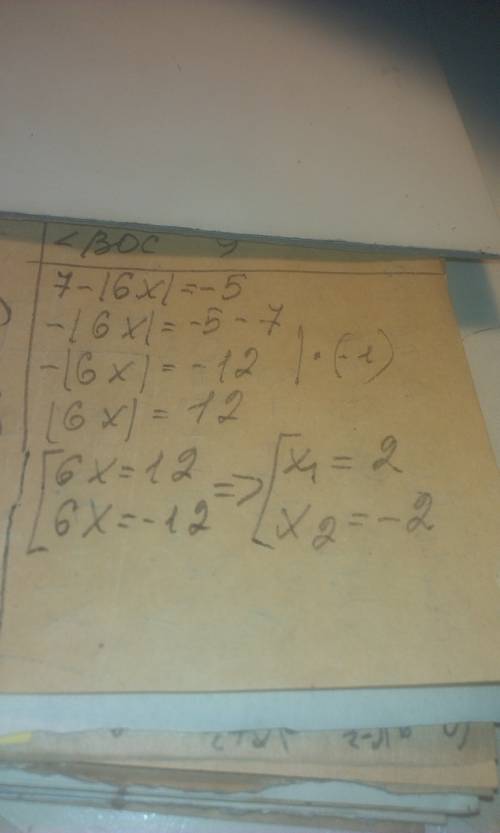 <BOC
7-|6x|=-5
-|6x|=-5-7
-|6x|=-12 | · (-1)
|6x|=12
[6x=12 => [x₁=2
6x=-12 x₂=-2